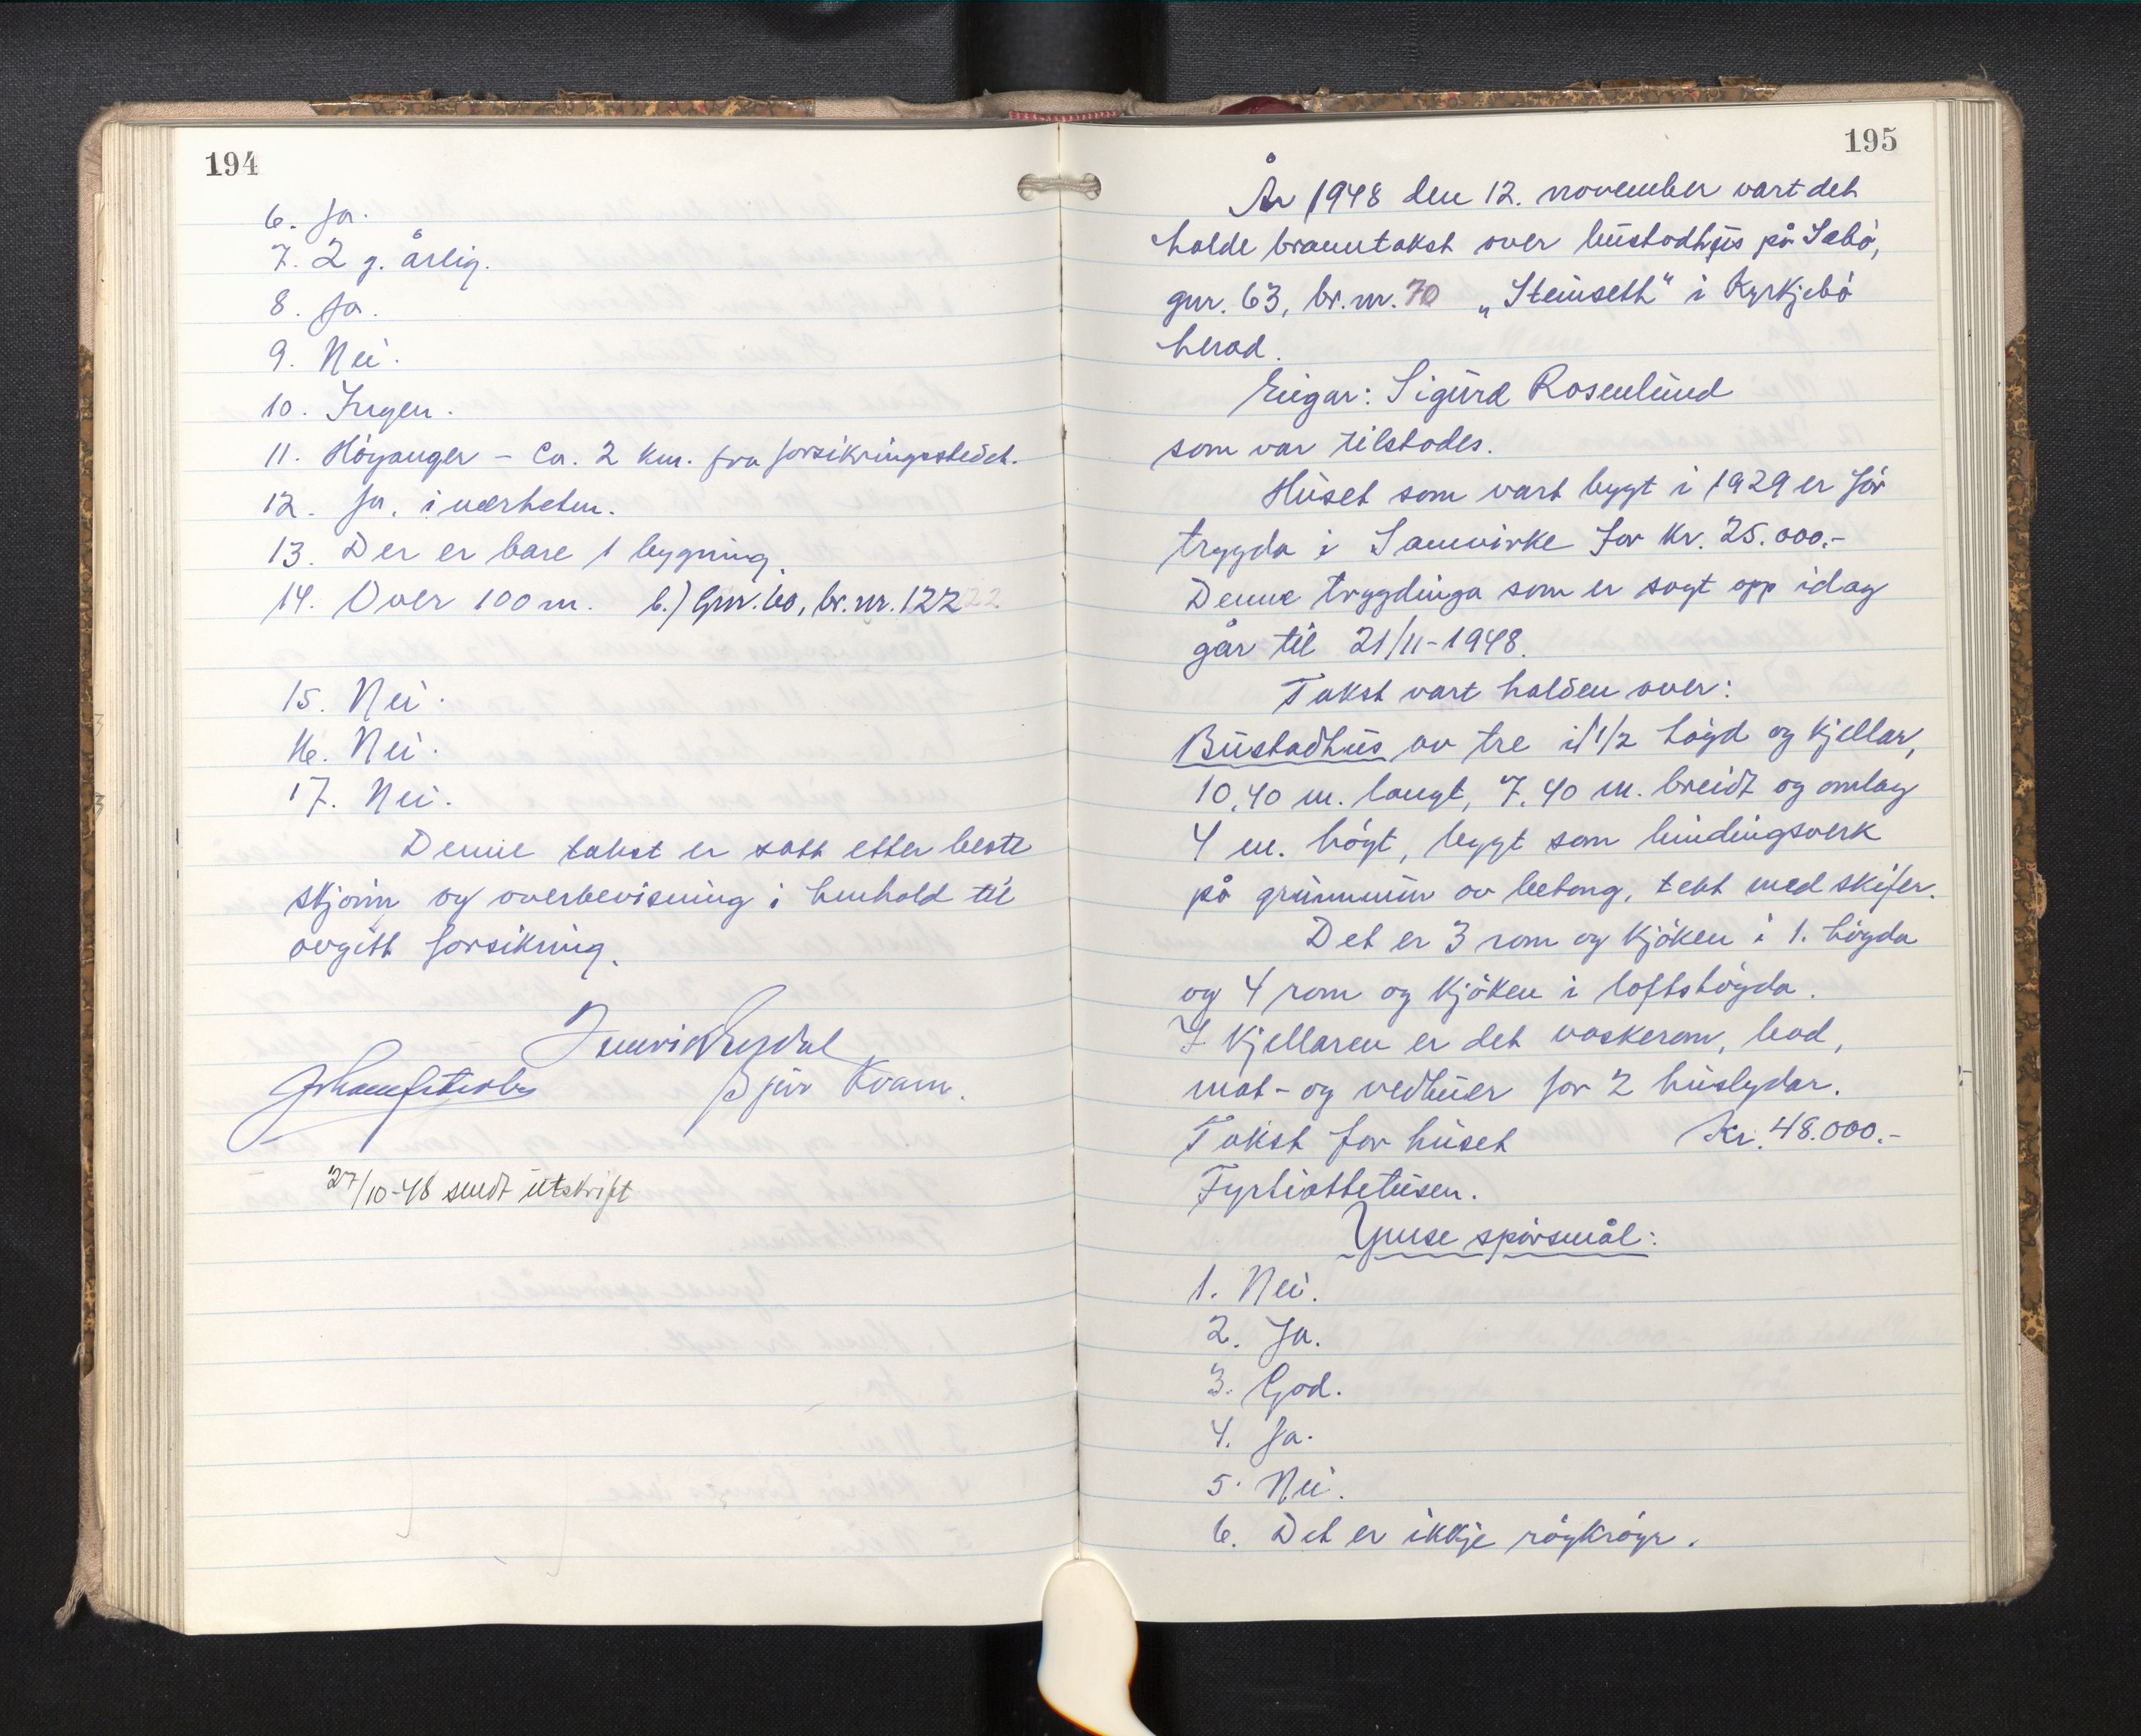 194
6. Ja.
7. 2 g. årlig.
8. Ja.
9. Nei.
10. Ingen.
11. Höyanger - Ca. 2 km. fra forsikringsstedet.
12. Ja, i nærheten.
13. Der er bare 1 bygning.
14. Over 100 m. b.) Gnr. 60, br. nr. 122
15. Nei.
16. Nei.
17. Nei.
Denne takst er satt etter beste
skjönn og overbevisning i henhold til
avgitt forsikring.
Bjur Kvam.
27/10-48 sendt utskrift
195
År 1948 den 12. november vart det
halde branntakst over bustadhus på Sæbö,
gnr. 63, br. nr. 70 „Steinseth" i Kyrkjebö
herad.
Eigar: Sigurd Rosenlund
som var tilstades.
Huset som vart bygt i 1929 er för
trygda i Samvirke for kr. 25.000.-
Denne trygdinga som er sagt opp idag
går til 21/11-1948.
Takst vart halden over:
Bustadhus av tre i 1 1/2 högd og kjellar,
10,40 m. langt, 7,40 m. breidt og omlag
4 m. högt, bygt som bindingsverk
på grunnmur av betong, tekt med skifer.
Det er 3 rom og kjöken i 1. högda
og 4 rom og kjöken i loftshögda.
I kjellaren er det vaskerom, bod,
mat- og vedbuer for 2 huslydar.
Takst for huset Kr. 48.000.-
Fyrtiåttetusen.
Ymse spörsmål:
1. Nei.
2. Ja.
3. God.
4. Ja.
5. Nei.
6. Det er ikkje röykröyr.